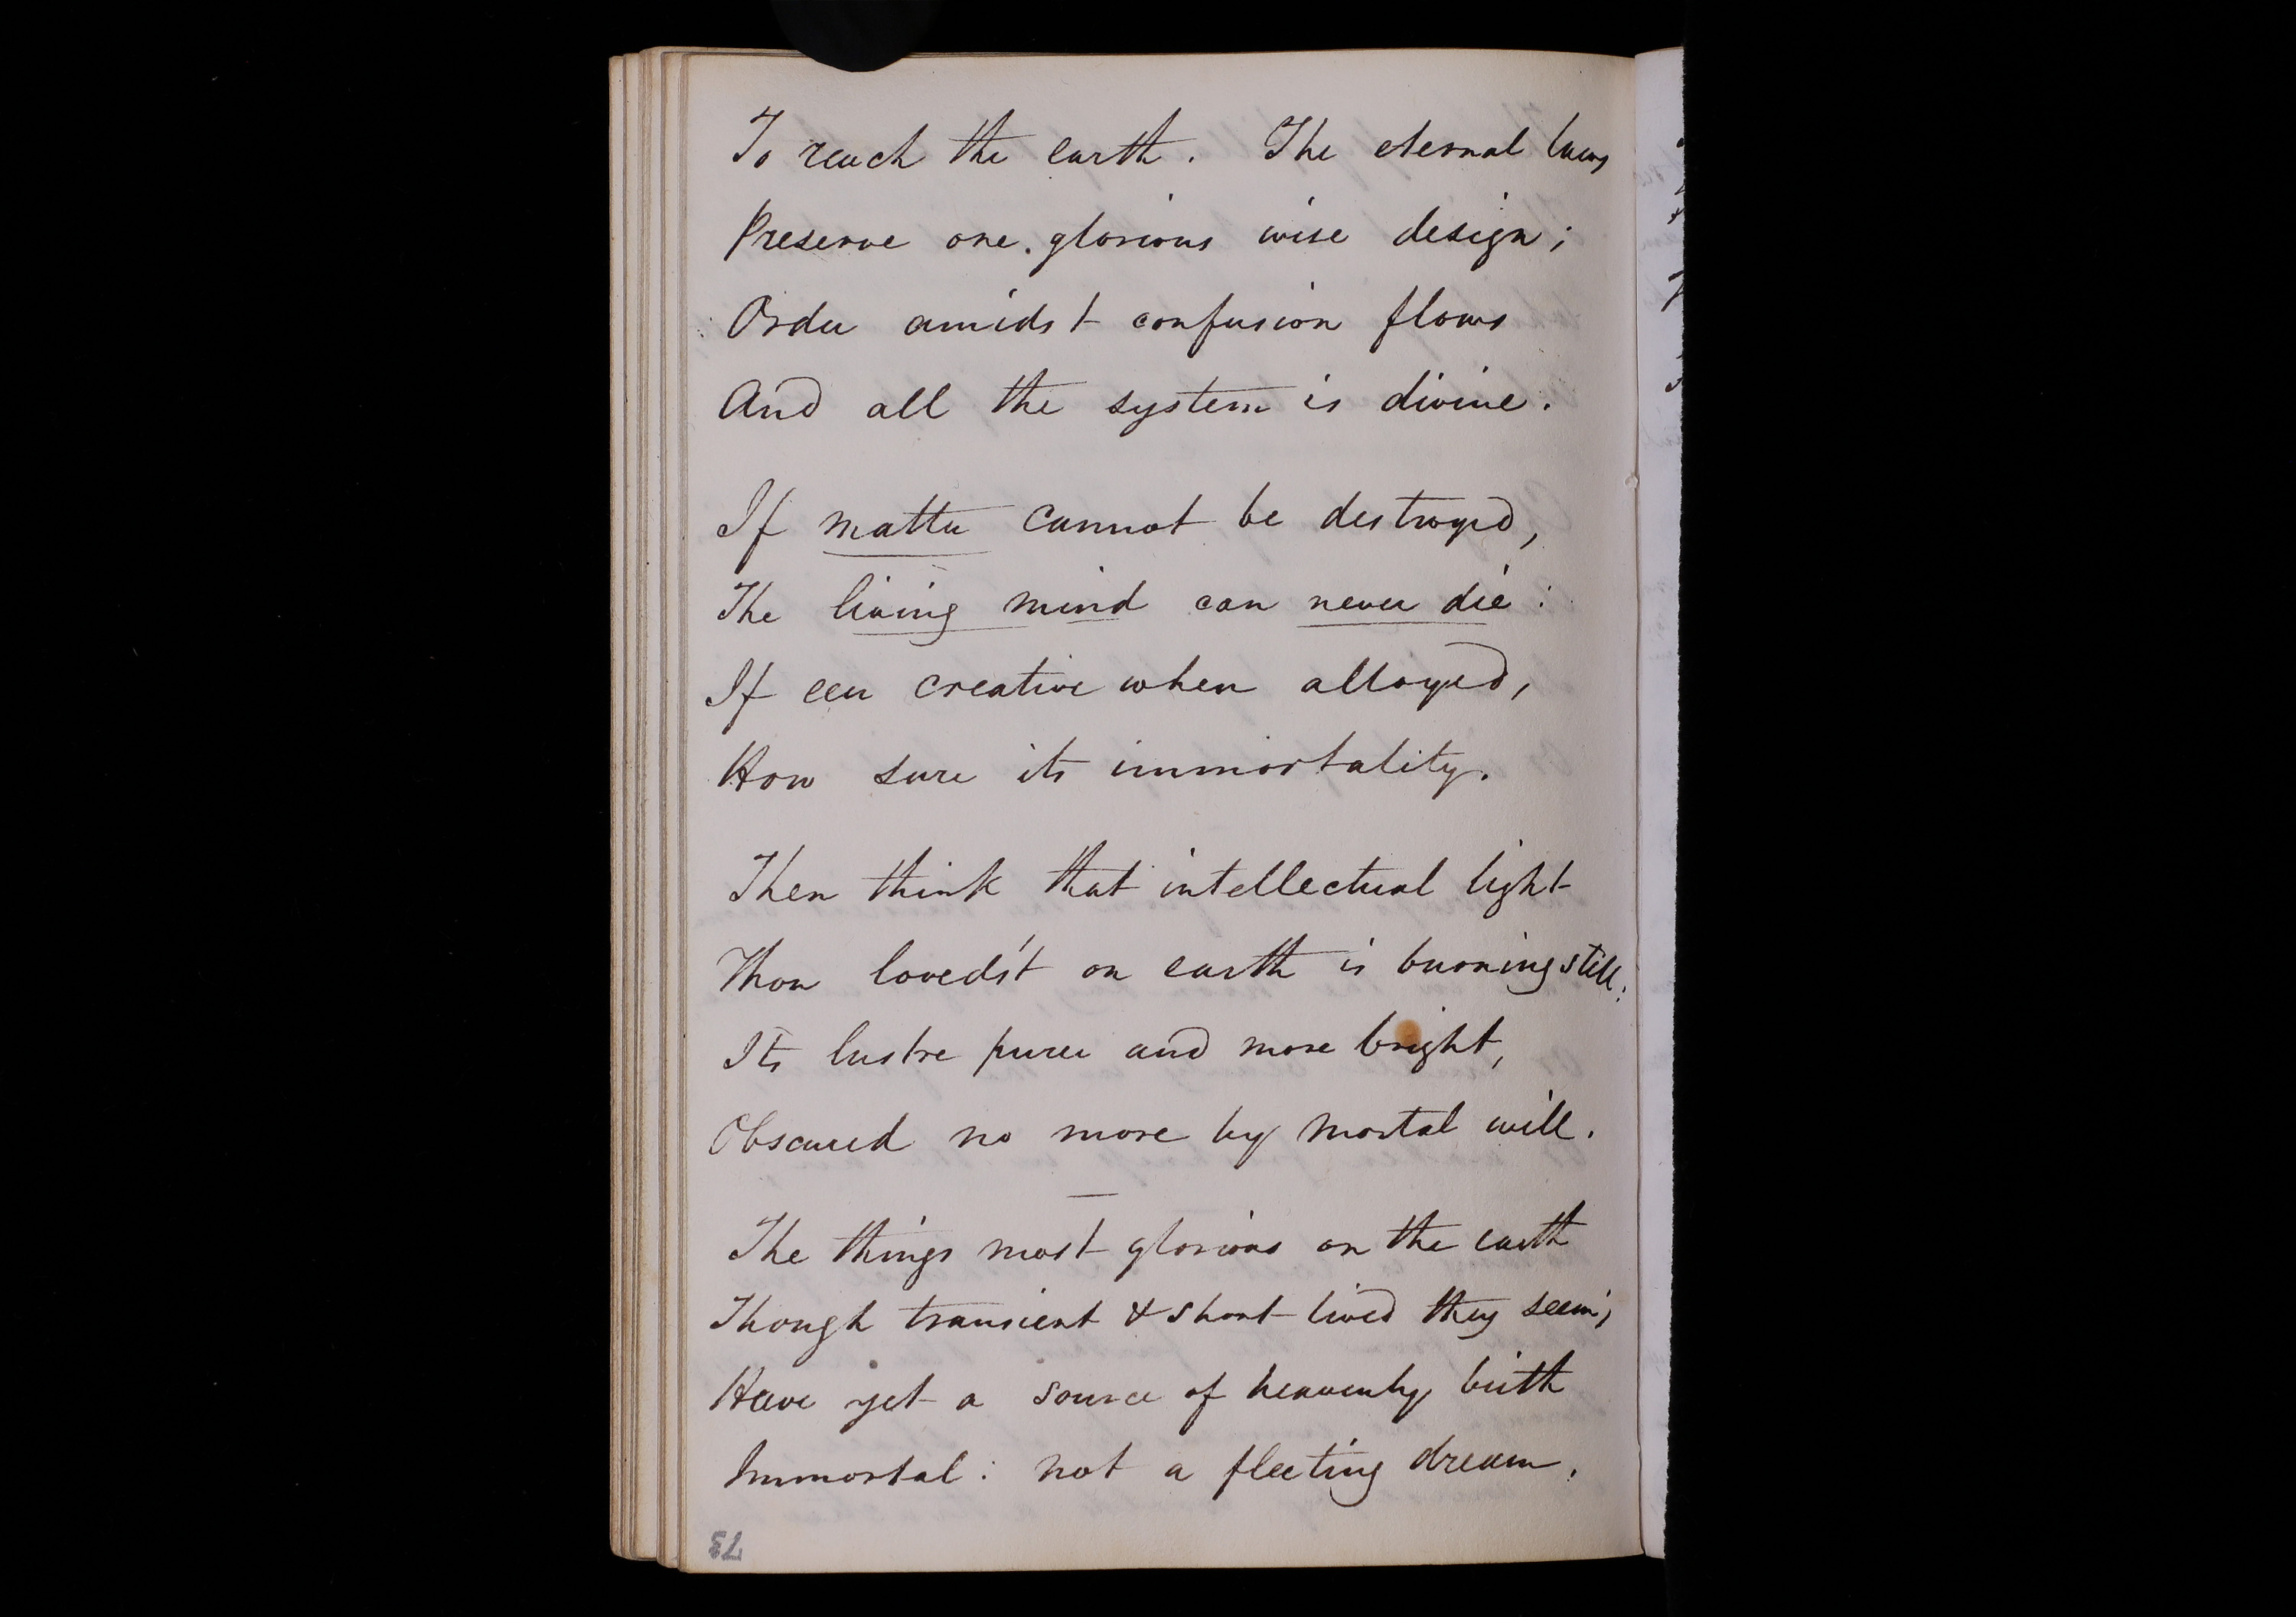 To reach the earth. The eternal laws
Preserve one glorious wise design;
Order amidst confusion flows
And all the system is divine.
If matter cannot be destroyed,
The living mind can never die:
If een creative when alloyed,
How sure its immortality.
Then think that intellectual light
Thou loved'st on earth is burning still:
Its lustre purer and more bright,
Obscured no more by mortal will.
The things most glorious on the earth
Though transient & short lived they seem,
Have yet a source of heavenly birth
Immortal: not a fleeting dream.
73